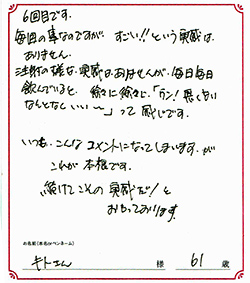 6回目です。
毎回の事なのですが、すごい!!という実感は
ありません。
注射の様な実感はありませんが、毎日毎日
飲んでいると、徐々に徐々に、「ウン!悪くない
なんとなくいい〜」って感じです。
いつも、こんなコメントになってしまいますが
これが本根です。
"続けてこその実感だ!と
おもっております。
お名前(本名orペンネーム)
キトさん 様 61 歳